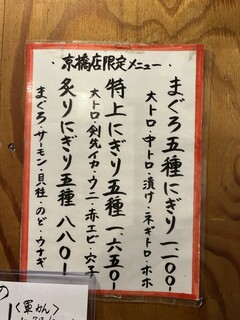 ・京橋店限定メニュー・
まぐろ五種にぎり 一、一〇〇ー
大トロ・中トロ・漬け・ネギトロ・ホホ
特上にぎり五種 一、六五〇ー
大トロ・剣先イカ・ウニ・赤エビ・穴子
炙りにぎり五種 八八〇ー
まぐろ・サーモン・貝柱・のど・ウナギ
の
〈軍かん〉